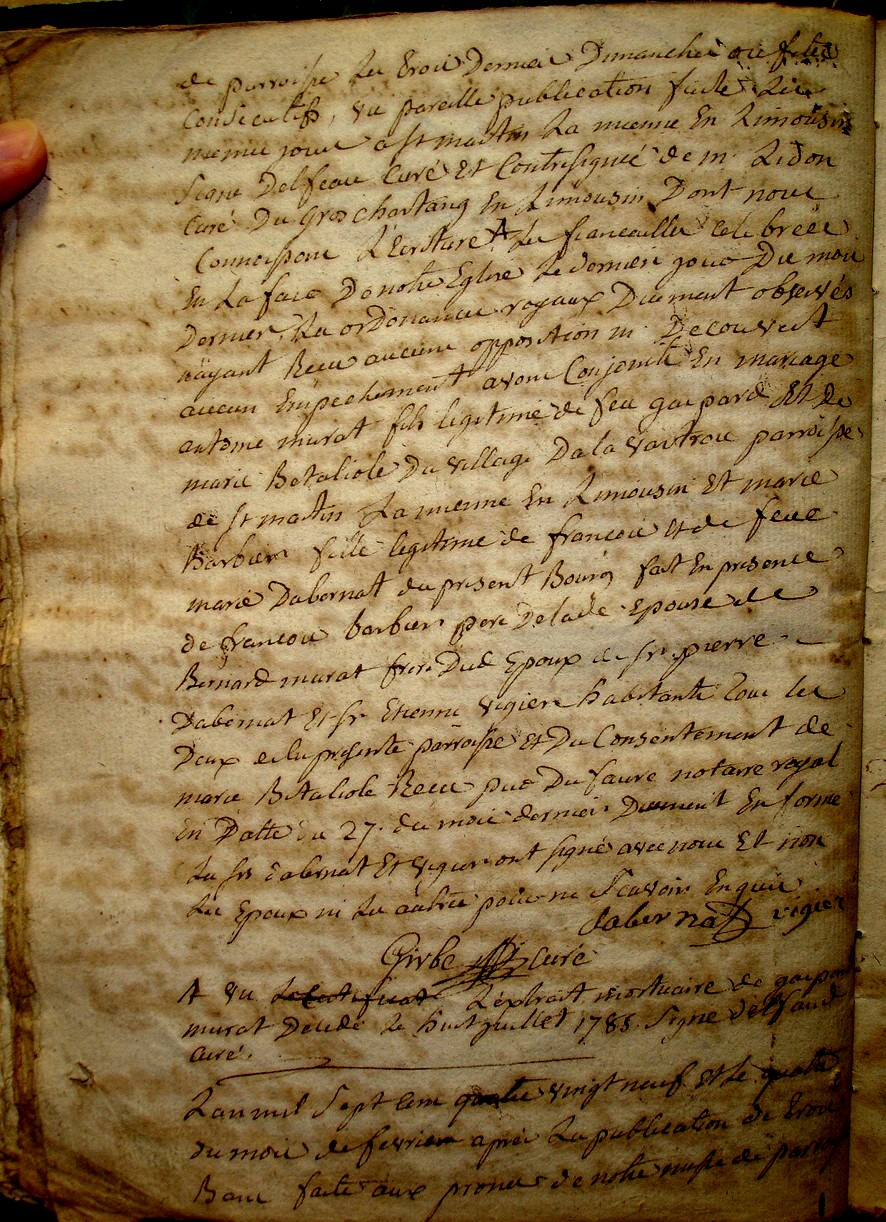 de parroisse les trois dernier dimanches ou fetes
consecutifs, vu pareille publication faite les
meme jours a st martin la mienne en Limousin
signe Delfeau curé et contresignée de m. Lidon
curé du Gros chastang en Limousin dont nous
connoissons l'ecriture A les fiancailles celebrées
en la face de notre Eglise le dernier jour du mois
dernier, les ordonances royaux duement observés
n'ayant recu aucune opposition ni decouvert
aucun empechement avons conjoints en mariage
antoine murat fils legitime de feu gaspard et de
marie Betaliole du village de la vaitrou parroisse
de st martin la mienne en Limousin et marie
Barbier fille legitime de francois et de feue
marie Dabernat du present Bourg fait en presence
de francois barbier pere de lade Epouse de
Bernard murat frere dud Epoux de sr. pierre
Dabernat et sr Etienne vigier habitants tous les
deux de la presente parroisse et du consentement de
marie Betaliole recu par Dufaure notaire royal
en datte du 27. du mois dernier. duement en forme
les srs dabernat et vigier ont signé avec nous et non
les Epoux ni les autres pour ne scavoir Enquis
dabernat vigier
Girbe curé
A vu le certificat L'extrait mortuaire de gaspard
murat decedé le huit juillet 1788. signe delfaud
curé.
L'an mil sept cent quatre vingt neuf et le quatre
du mois de fevrier apres la publication de trois
Bans faite aux prones de notre messe de parroisse